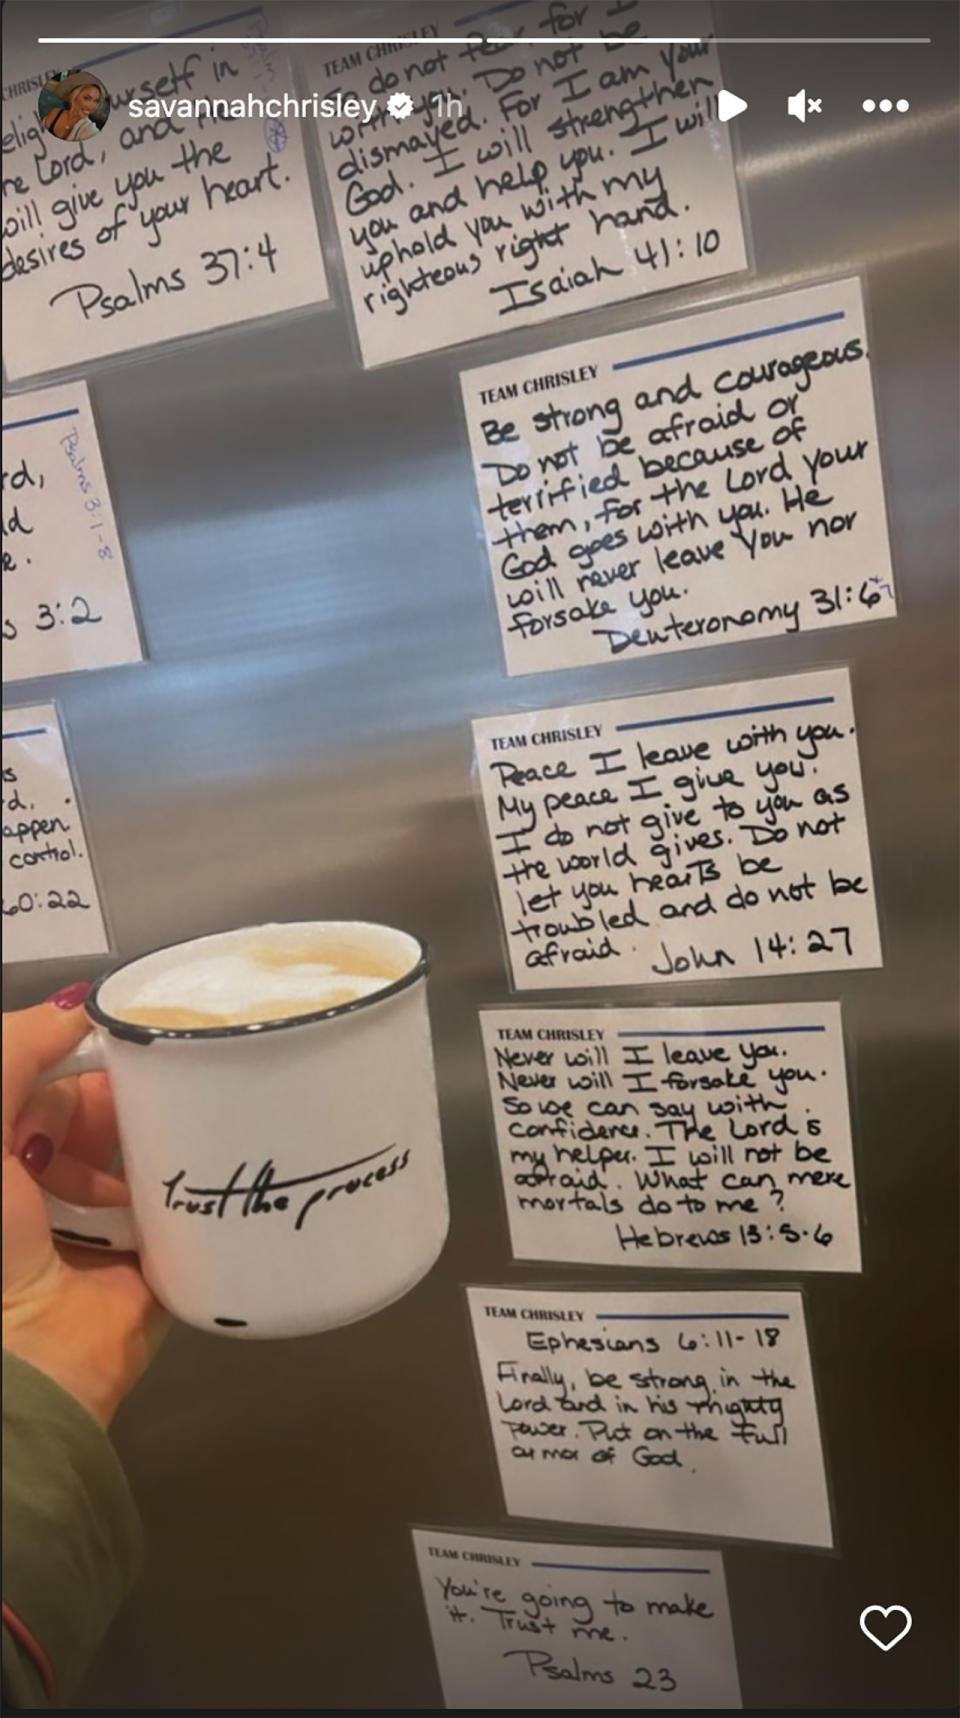 savannahchrisley 1h
CHRISLEY
urself in
he Lord, and he
will give you the
desires of your heart.
Psalms 37:4
TEAM CHRISLEY
do not fear for I
with you. Do not be
dismayed. For I am your
God. I will strengthen
you and help you. I will
uphold you with my
righteous right hand.
Isaiah 41:10
TEAM CHRISLEY
Be strong and courageous.
Do not be afraid or
terrified because of
them, for the Lord your
God goes with you. He
will never leave you nor
forsake you.
Deuteronomy 31:6
rd,
Psalms 3:1-8
e.
3:2
TEAM CHRISLEY
Peace I leave with you.
My peace I give you.
I do not give to you as
the world gives. Do not
let you hearts be
troubled and do not be
afraid.
John 14:27
s
d.
appen.
control.
60:22
TEAM CHRISLEY
Never will I leave you.
Never will I forsake you.
So we can say with
confidence. The Lord is
my helper. I will not be
afraid. What can mere
mortals do to me?
Hebrews 13:5-6
Trust the process
TEAM CHRISLEY
Ephesians 6:11-18
Finally, be strong in the
Lord and in his mighty
power. Put on the full
armor of God.
TEAM CHRISLEY
You're going to make
it. Trust me.
Psalms 23